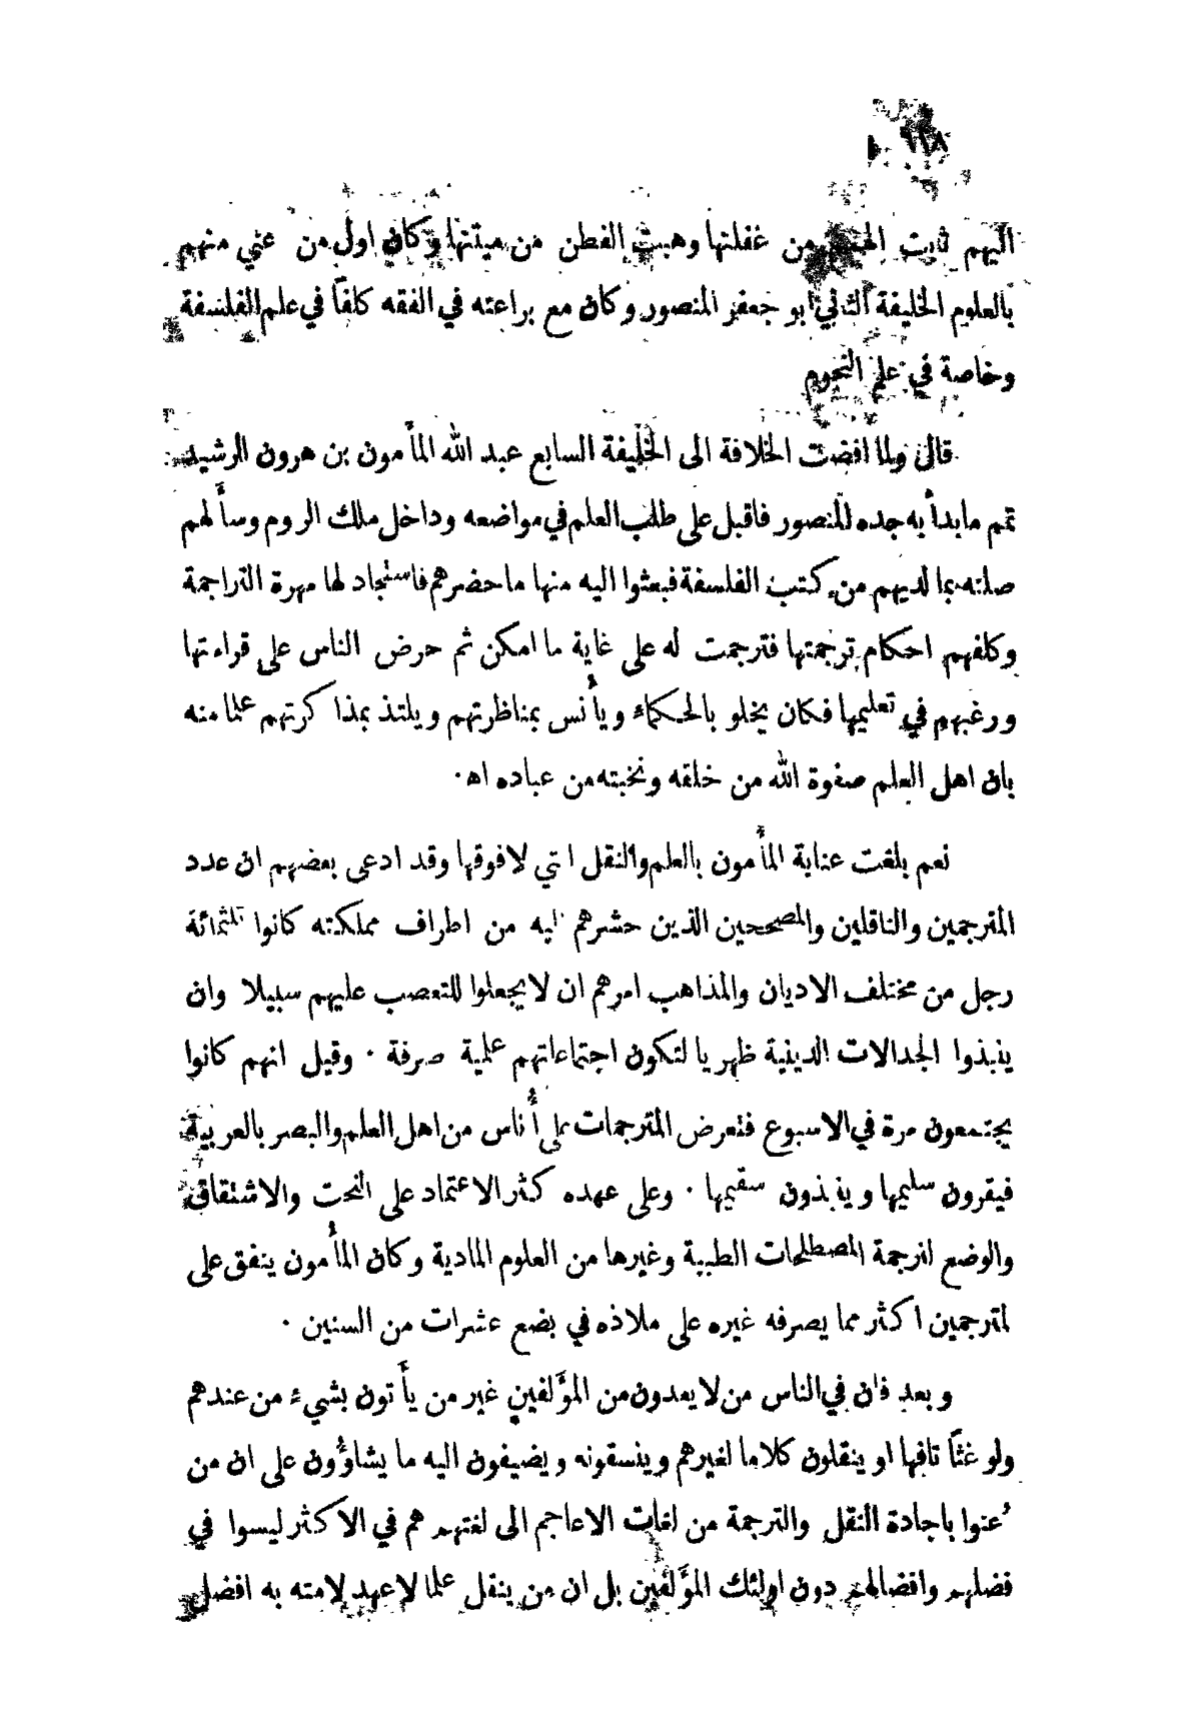 ٦١٨
اليهم ثابت الهمم من غفلتها وهبت الفطن من ميتتها وكان اول من عني منهم
بالعلوم الخليفة الثاني ابو جعفر المنصور وكان مع براعته في الفقه كلفاً في علم الفلسفة
وخاصة في علم النجوم
قال ولما افضت الخلافة الى الخليفة السابع عبد الله المأمون بن هرون الرشيد
تمم مابدأ به جده المنصور فاقبل على طلب العلم في مواضعه وداخل ملك الروم وسألهم
صلته بما لديهم من كتب الفلسفة فبعثوا اليه منها ما حضرهم فاستجاد لها مهرة التراجمة
وكلفهم احكام ترجمتها فترجمت له على غاية ما امكن ثم حرض الناس على قراءتها
ورغبهم في تعليمها فكان يخلو بالحكماء ويأنس بمناظرتهم ويلتذ بمذاكرتهم علما منه
بان اهل العلم صفوة الله من خلقه ونخبته من عباده اه ٠
نعم بلغت عناية المأمون بالعلم والنقل التي لا فوقها وقد ادعى بعضهم ان عدد
المترجمين والناقلين والمصححين الذين حشرهم اليه من اطراف مملكته كانوا ثلثمائة
رجل من مختلف الاديان والمذاهب امرهم ان لا يجعلوا للتعصب عليهم سبيلا وان
ينبذوا الجدالات الدينية ظهريا لتكون اجتماعاتهم علمية صرفة ٠ وقيل انهم كانوا
يجتمعون مرة في الاسبوع فتعرض المترجمات على أناس من اهل العلم والبصر بالعربية
فيقرون سليمها وينبذون سقيمها ٠ وعلى عهده كثر الاعتماد على النحت والاشتقاق
والوضع لترجمة المصطلحات الطبية وغيرها من العلوم المادية وكان المأمون ينفق على
لمترجمين اكثر مما يصرفه غيره على ملاذه في بضع عشرات من السنين ٠
وبعد فان في الناس من لا يعدون من المؤلفين غير من يأتون بشيء من عندهم
ولو غثاً تافها او ينقلون كلاما لغيرهم وينسقونه ويضيفون اليه ما يشاؤون على ان من
عُنوا باجادة النقل والترجمة من لغات الاعاجم الى لغتهم هم في الاكثر ليسوا في
فضلهم وافضالهم دون اولئك المؤلفين بل ان من ينقل علما لا عهد لامته به افضل